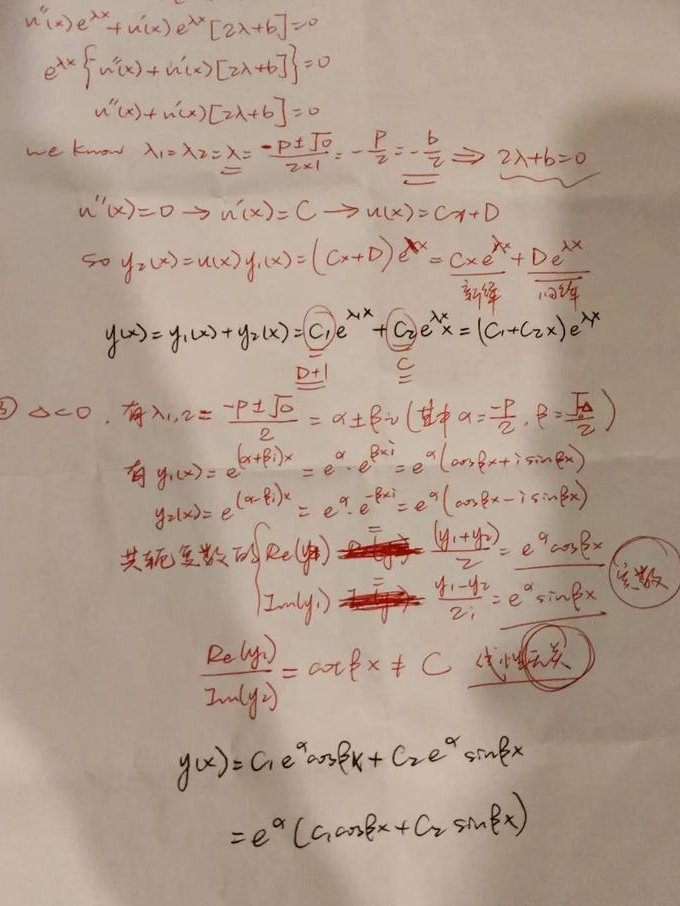 u''(x)e^{λx}+u'(x)e^{λx}[2λ+b]=0
e^{λx}{u''(x)+u'(x)[2λ+b]}=0
u''(x)+u'(x)[2λ+b]=0
we know λ₁=λ₂=λ=(-p±√0)/(2×1)=-p/2=-b/2 ⇒ 2λ+b=0
u''(x)=0→u'(x)=C→u(x)=Cx+D
so y₂(x)=u(x)y₁(x)=(Cx+D)e^{λx}=Cxe^{λx}+De^{λx}
y(x)=y₁(x)+y₂(x)=C₁e^{λx}+C₂e^{λx}x=(C₁+C₂x)e^{λx}
D+1 C
③ Δ<0, 有λ₁,₂=(-p±√Δ)/2=α±βi(其中α=-p/2, β=√Δ/2)
有y₁(x)=e^{(α+βi)x}=e^α·e^{βxi}=e^α(cosβx+i sinβx)
y₂(x)=e^{(α-βi)x}=e^α·e^{-βxi}=e^α(cosβx-i sinβx)
共轭复数的{Re(y₁) = (y₁+y₂)/2=e^α cosβx
Im(y₁) = (y₁-y₂)/2i=e^α sinβx
实数
Re(y₁)/Im(y₂)=cotβx≠C 线性无关
y(x)=C₁e^α cosβx+C₂e^α sinβx
=e^α(C₁cosβx+C₂sinβx)